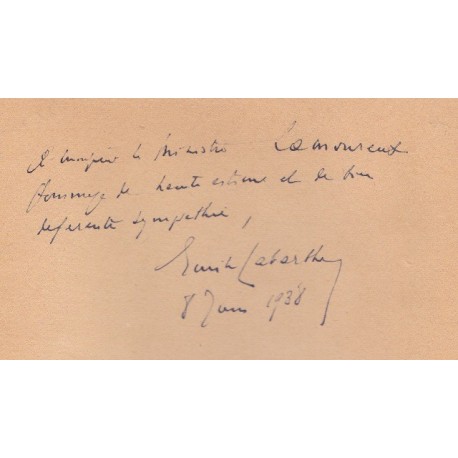 A Monsieur le Ministre Lamoureux
Hommage de haute estime et de
deferente sympathie,
Emile Labarthe
8 Juin 1938